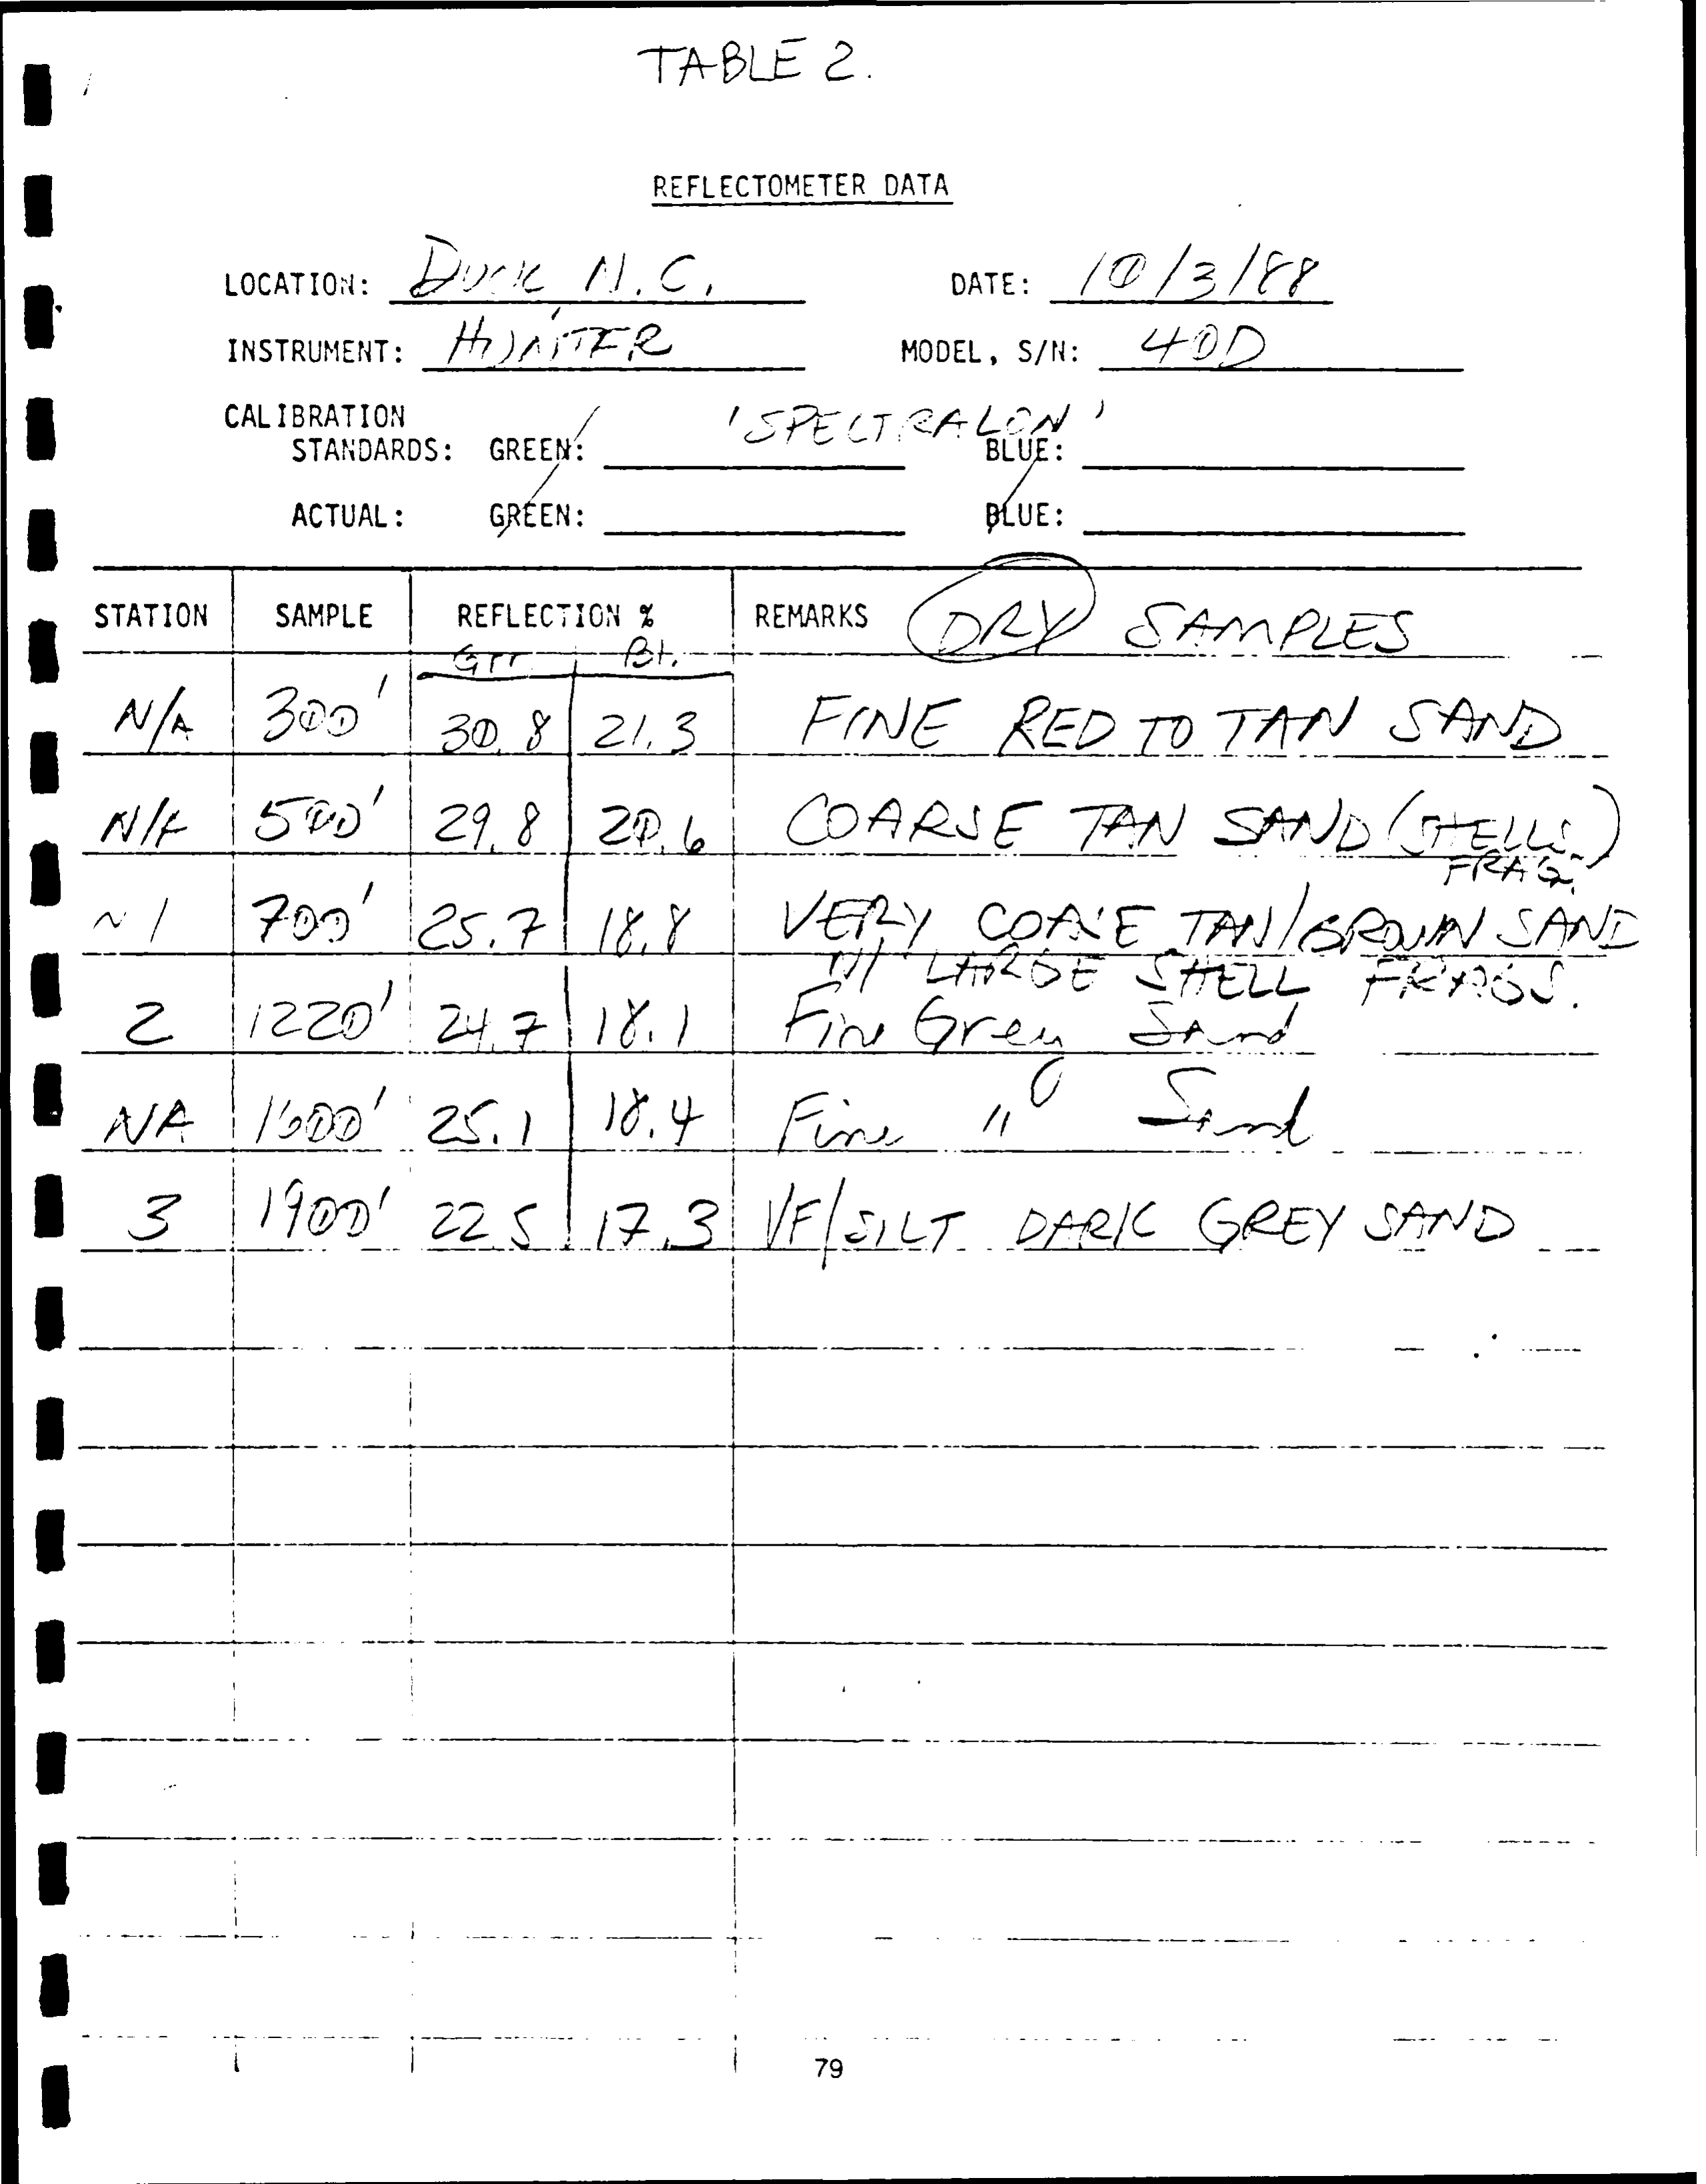 TABLE 2.
REFLECTOMETER DATA
LOCATION: DUCK N.C. DATE: 10/3/88
INSTRUMENT: HUNTER MODEL, S/N: 40D
CALIBRATION 'SPECTRALON'
STANDARDS: GREEN: BLUE:
ACTUAL: GREEN: BLUE:
STATION SAMPLE REFLECTION % REMARKS DRY SAMPLES
Grr Bl.
N/A 300' 30.8 21.3 FINE RED TO TAN SAND
N/A 500' 29.8 20.6 COARSE TAN SAND (SHELLS)
FRAG.
~1 700' 25.7 18.8 VERY COARSE TAN/BROWN SAND
W/ LARGE SHELL FRAGS.
2 1220' 24.7 18.1 Fine Grey Sand
NA 1600' 25.1 18.4 Fine " Sand
3 1900' 22.5 17.3 VF/SILT DARK GREY SAND
79